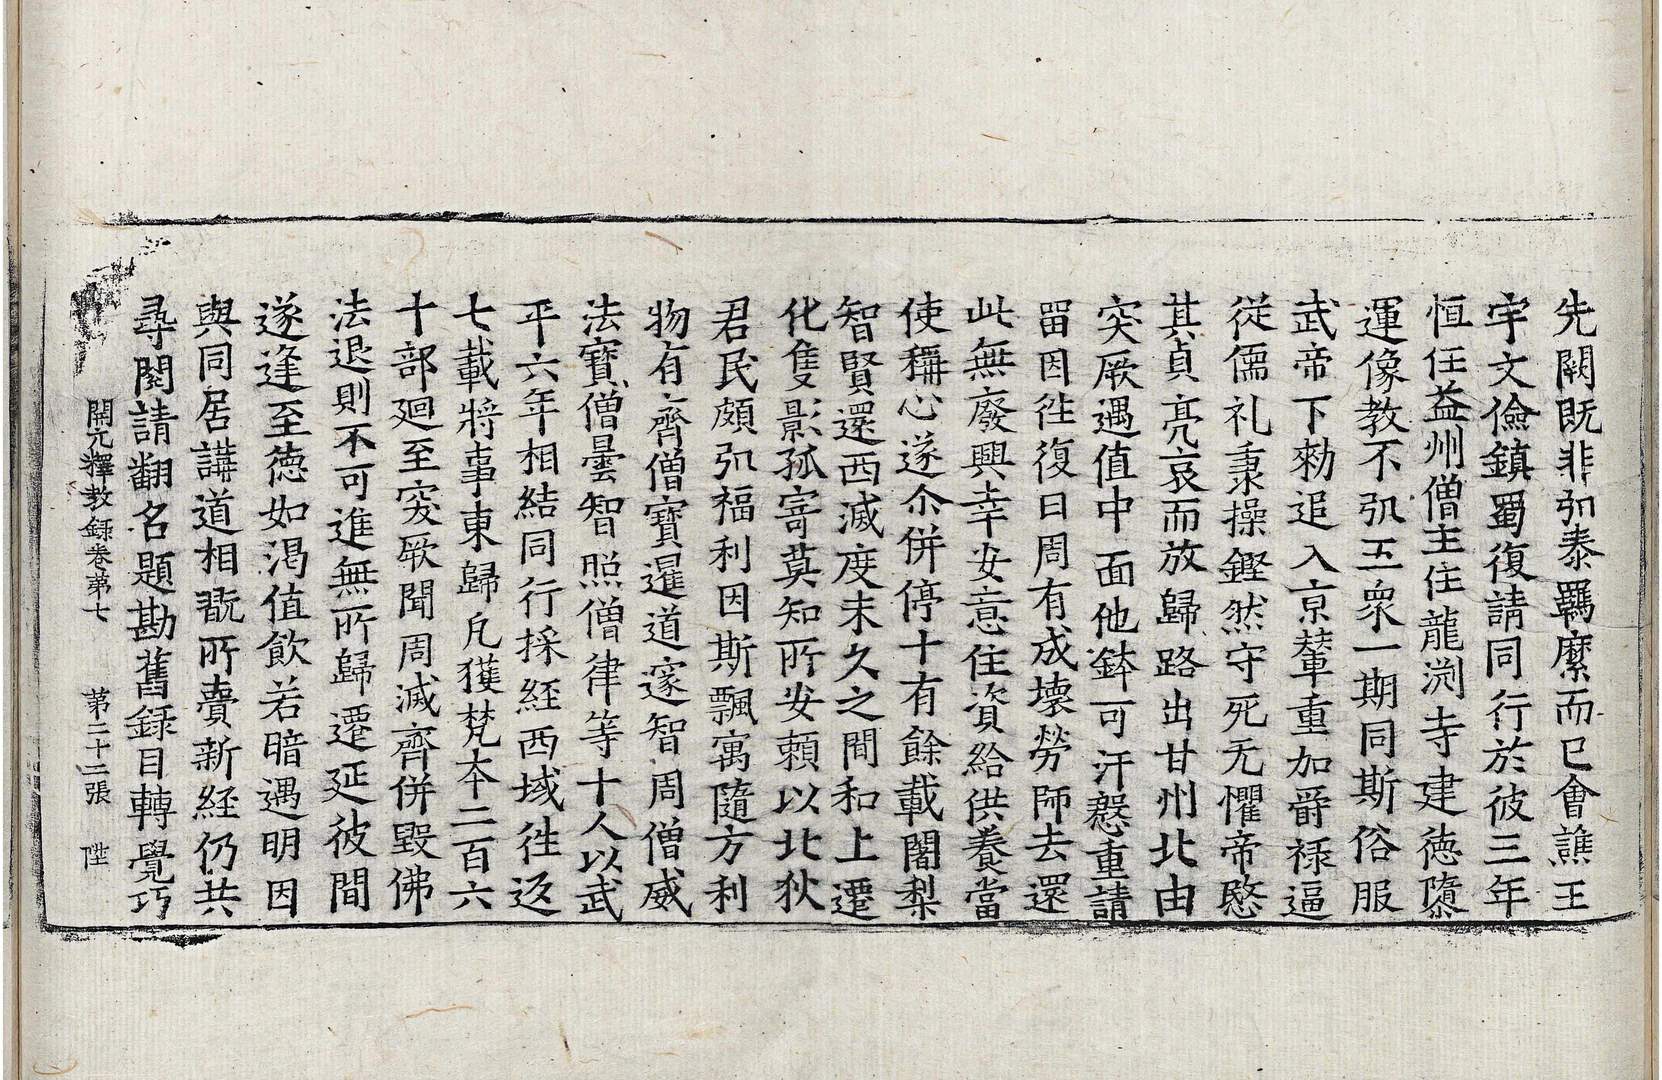 先闕既非弘泰羈縻而已會譙王
宇文儉鎮蜀復請同行於彼三年
恒任益州僧主住龍渕寺建德隳
運像教不弘五衆一期同斯俗服
武帝下勑追入京輦重加爵禄逼
從儒礼秉操鏗然守死无懼帝愍
其貞亮哀而放歸路出甘州北由
突厥遇值中面他鉢可汗慇重請
留因徃復曰周有成壞勞師去還
此無廢興幸安意住資給供養當
使稱心遂尒併停十有餘載闍梨
智賢還西滅度未久之間和上遷
化隻影孤寄莫知所安賴以北狄
君民頗弘福利因斯飄寓隨方利
物有齊僧寶暹道邃智周僧威
法寶僧曇智照僧律等十人以武
平六年相結同行採経西域徃返
七載將事東歸凡獲梵夲二百六
十部廻至突厥聞周滅齊併毀佛
法退則不可進無所歸遷延彼間
遂逢至德如渇值飲若暗遇明因
與同居講道相翫所賷新経仍共
尋閱請翻名題勘舊録目轉覺巧
開元釋教録卷第七 第二十二張 陛